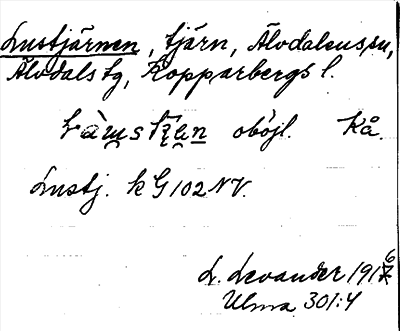 Lustjärnen, tjärn, Älvdalens sn,
Älvdals tg, Kopparbergs l.
oböjl. Kå.
Lustj. k G 102 NV.
L. Levander 1916
Ulma 301:4